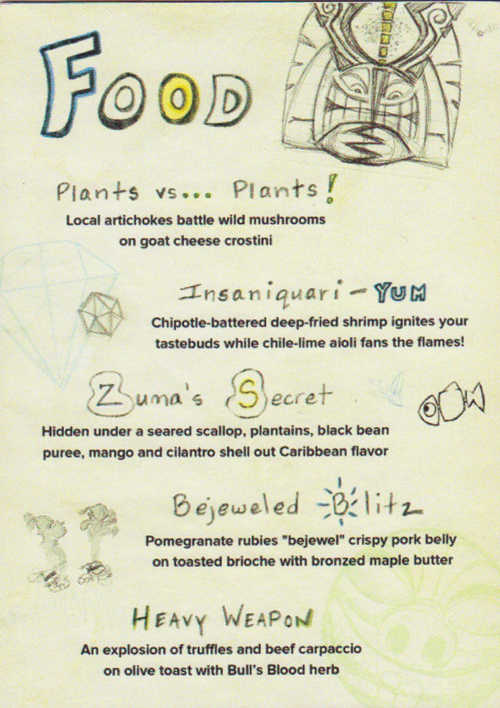 Food
Plants vs... Plants!
Local artichokes battle wild mushrooms
on goat cheese crostini
Insaniquari-YUM
Chipotle-battered deep-fried shrimp ignites your
tastebuds while chile-lime aioli fans the flames!
Zuma's Secret
Hidden under a seared scallop, plantains, black bean
puree, mango and cilantro shell out Caribbean flavor
Bejeweled Blitz
Pomegranate rubies "bejewel" crispy pork belly
on toasted brioche with bronzed maple butter
HEAVY WEAPON
An explosion of truffles and beef carpaccio
on olive toast with Bull's Blood herb